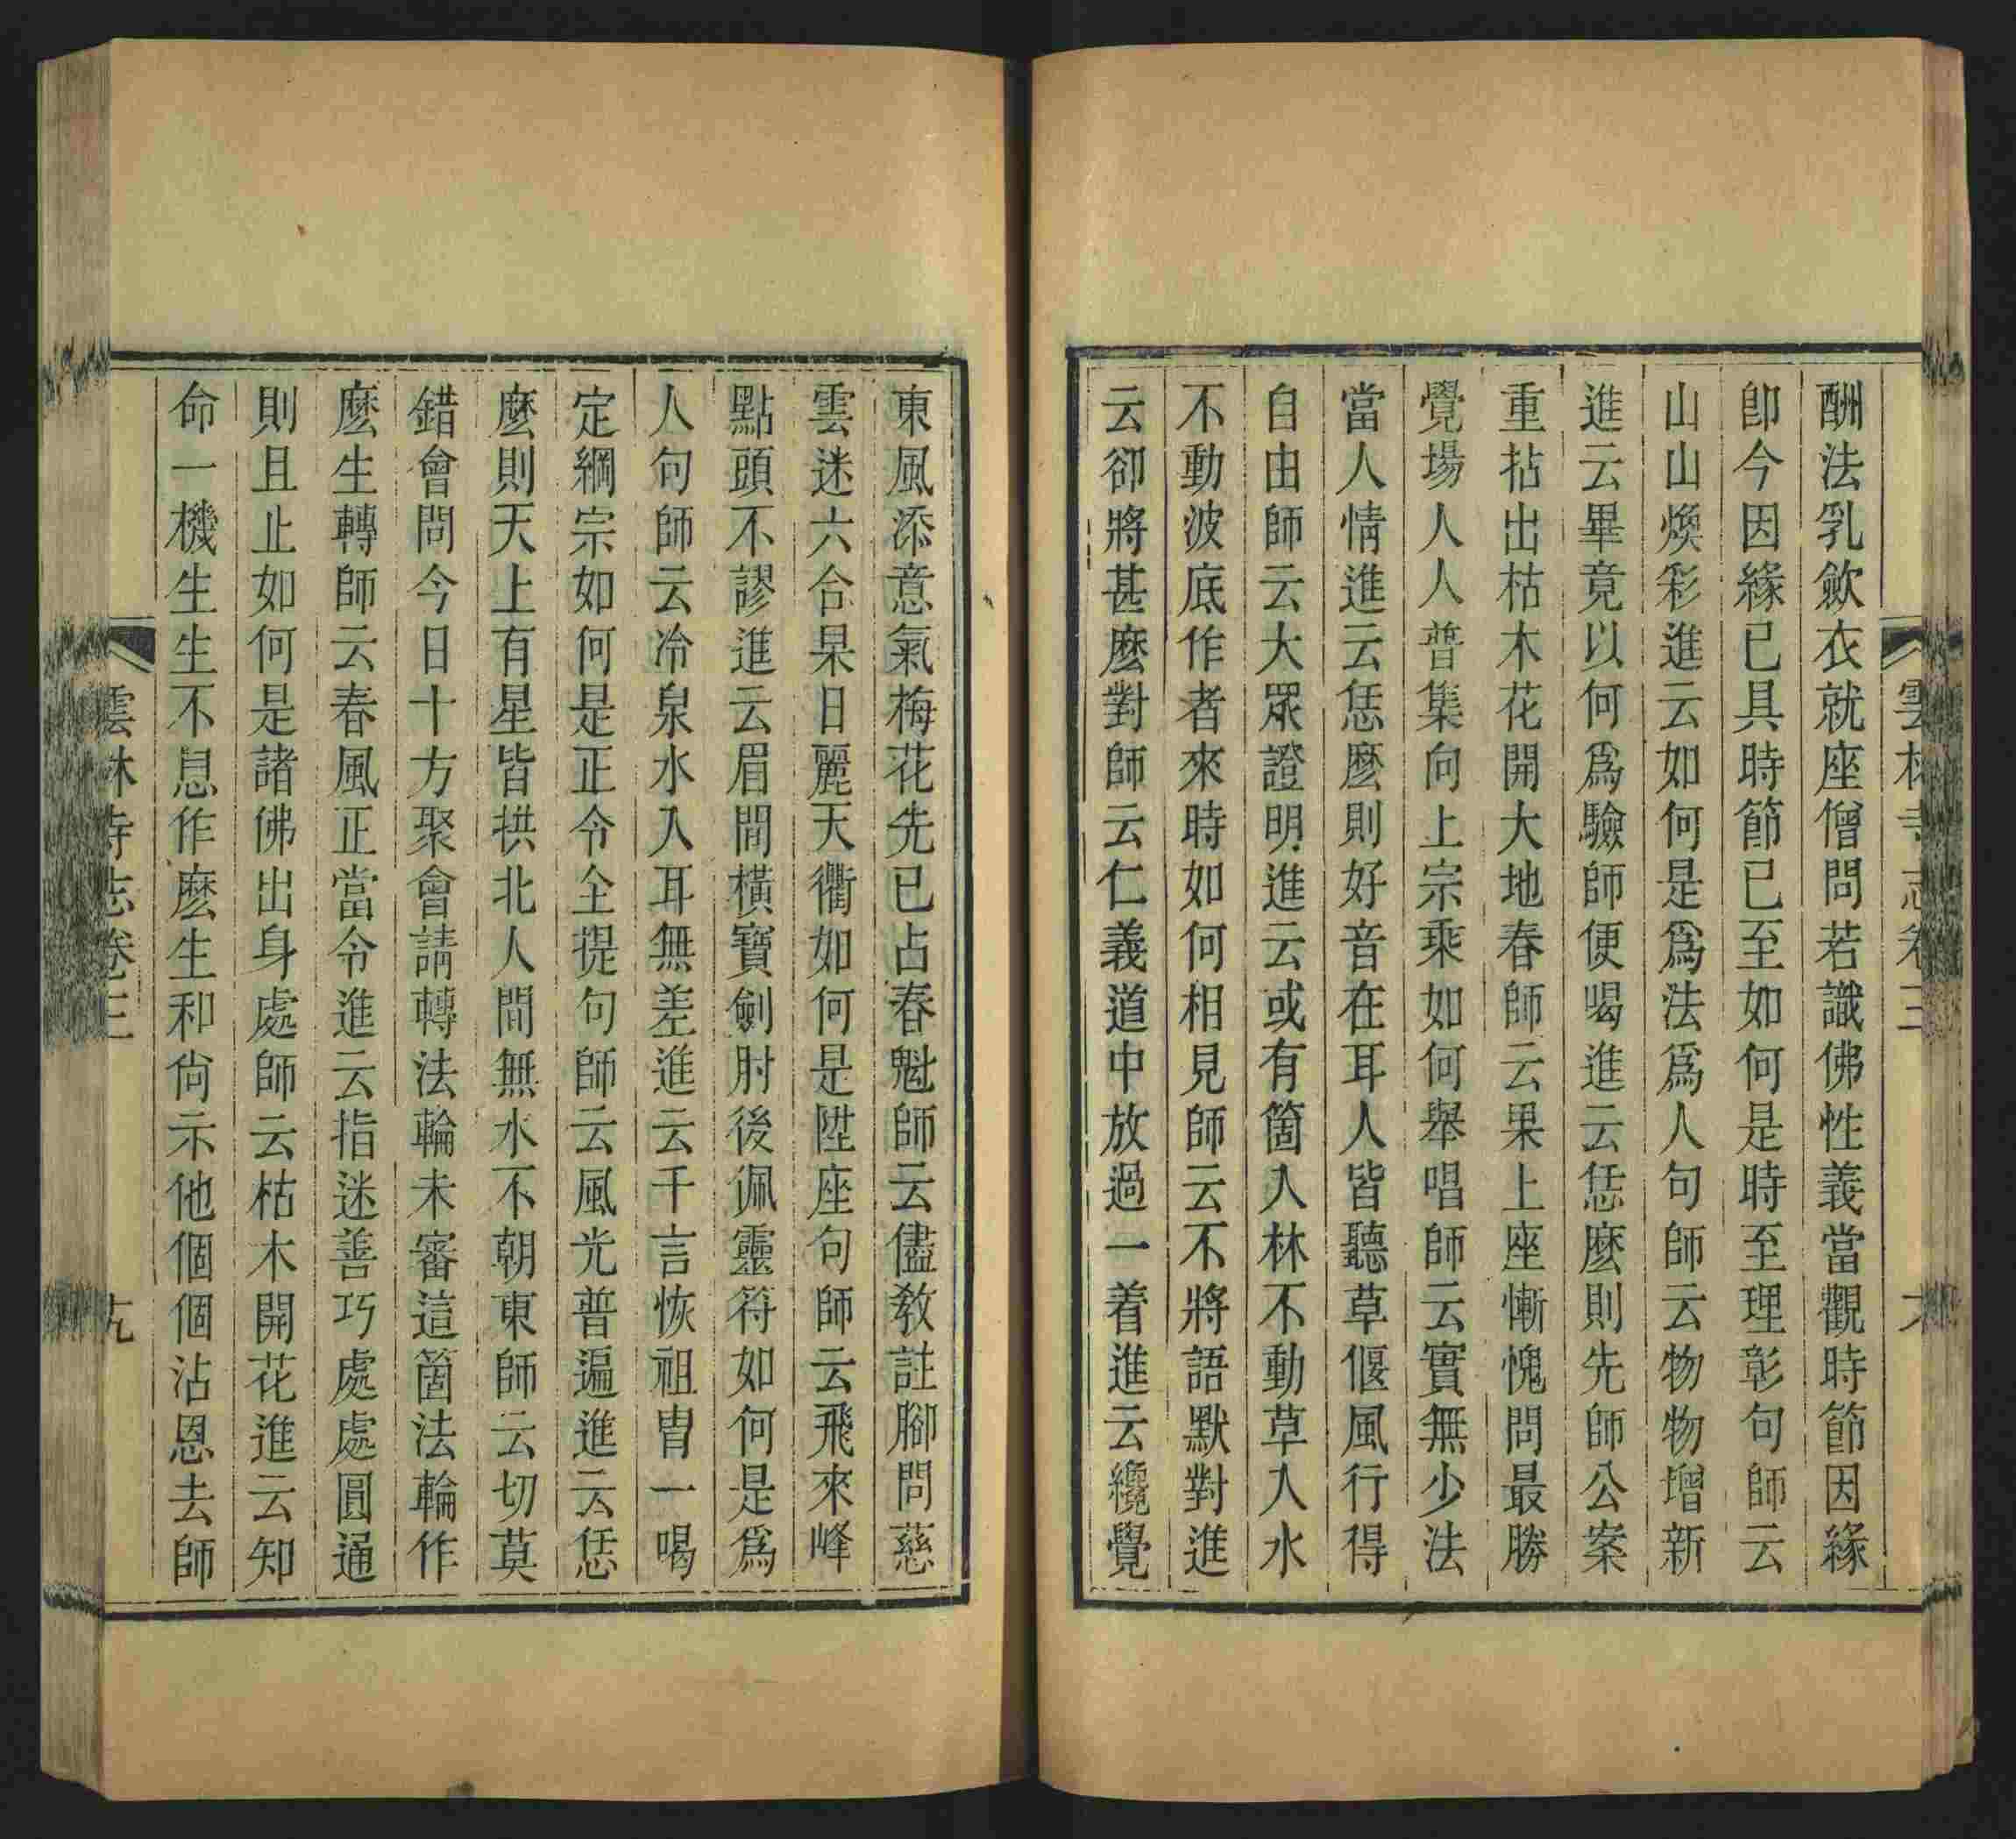 雲林寺志卷三
酬法乳斂衣就座僧問若識佛性義當觀時節因緣
卽今因緣已具時節已至如何是時至理彰句師云
山山煥彩進云如何是爲法爲人句師云物物增新
進云畢竟以何爲驗師便喝進云恁麽則先師公案
重拈出枯木花開大地春師云果上座慚愧問最勝
覺場人人普集向上宗乘如何舉唱師云實無少法
當人情進云恁麽則好音在耳人皆聽草偃風行得
自由師云大眾證明進云或有箇入林不動草入水
不動波底作者來時如何相見師云不將語默對進
云卻將甚麽對師云仁義道中放過一着進云纔覺
東風添意氣梅花先已占春魁師云儘敎註腳問慈
雲迷六合杲日麗天衢如何是陞座句師云飛來峰
點頭不謬進云眉間橫寶劍肘後佩靈符如何是爲
人句師云冷泉水入耳無差進云千言恢祖胄一喝
定綱宗如何是正令全提句師云風光普遍進云恁
麽則天上有星皆拱北人間無水不朝東師云切莫
錯會問今日十方聚會請轉法輪未審這箇法輪作
麽生轉師云春風正當令進云指迷善巧處處圓通
則且止如何是諸佛出身處師云枯木開花進云知
命一機生生不息作麽生和尙示他個個沾恩去師
雲林寺志卷三